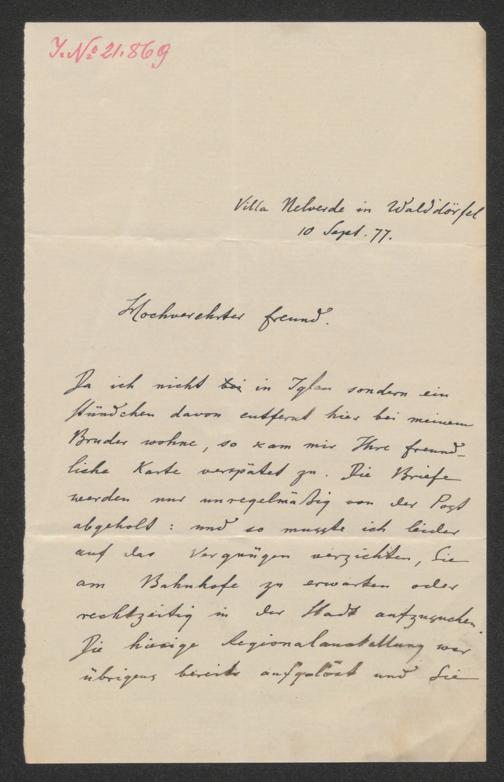 I. No 21.869
Villa Nelverde in Walddörfel
10 Sept. 77.
Hochverehrter Freund.
Da ich nicht bei in Iglau sondern ein
Stündchen davon entfernt hier bei meinem
Bruder wohne, so kam mir Ihre freund-
liche Karte verspätet zu. Die Briefe
werden nur unregelmäßig von der Post
abgeholt: und so musste ich leider
auf das Vergnügen verzichten, Sie
am Bahnhofe zu erwarten oder
rechtzeitig in der Stadt aufzusuchen.
Die hiesige Regionalausstellung war
übrigens bereits aufgelöst und Sie